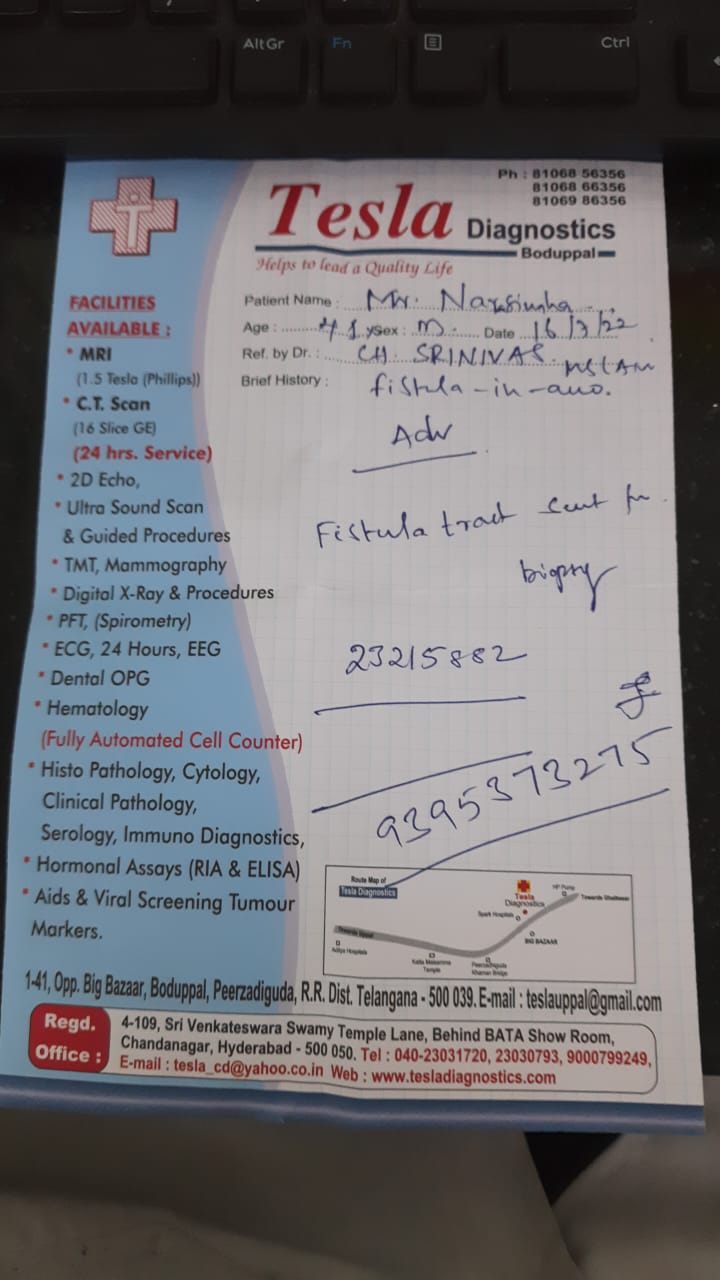 Alt Gr Fn Ctrl
Ph : 81068 56356
81068 66356
81069 86356
T
Tesla Diagnostics
Boduppal
Helps to lead a Quality Life
Patient Name : Mr. Narsimha
Age : 41 y Sex : M Date 16/7/22
Ref. by Dr. : CH. SRINIVAS.
Brief History : fistula-in-ano.
Adv
Fistula tract sent for
biopsy
23215882
9395373275
FACILITIES
AVAILABLE :
* MRI
(1.5 Tesla (Phillips))
* C.T. Scan
(16 Slice GE)
(24 hrs. Service)
* 2D Echo,
* Ultra Sound Scan
& Guided Procedures
* TMT, Mammography
* Digital X-Ray & Procedures
* PFT, (Spirometry)
* ECG, 24 Hours, EEG
* Dental OPG
* Hematology
(Fully Automated Cell Counter)
* Histo Pathology, Cytology,
Clinical Pathology,
Serology, Immuno Diagnostics,
* Hormonal Assays (RIA & ELISA)
* Aids & Viral Screening Tumour
Markers.
Route Map of
Tesla Diagnostics
Tesla
Diagnostics
HP Pump
Spark Hospitals
BIG BAZAAR
Towards Uppal
Aditya Hospitals
Temple
Peerzadiguda
1-41, Opp. Big Bazaar, Boduppal, Peerzadiguda, R.R. Dist. Telangana - 500 039. E-mail : teslauppal@gmail.com
Regd.
Office :
4-109, Sri Venkateswara Swamy Temple Lane, Behind BATA Show Room,
Chandanagar, Hyderabad - 500 050. Tel : 040-23031720, 23030793, 9000799249,
E-mail : tesla_cd@yahoo.co.in Web : www.tesladiagnostics.com